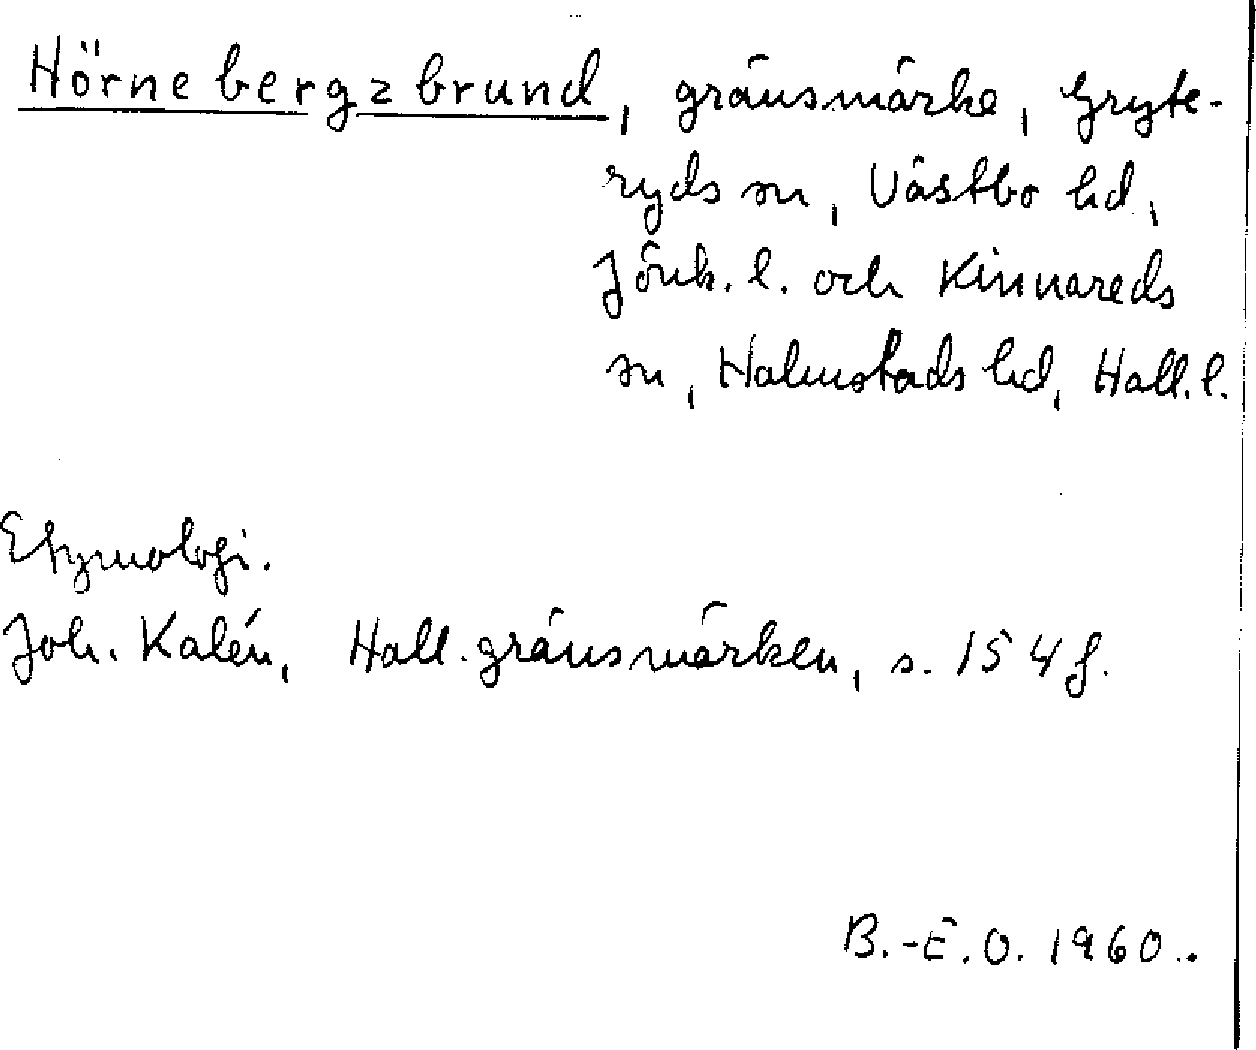 Hörnebergzbrund, gränsmärke, Gryte-
ryds sn, Västbo hd,
Jönk. l. och Kinnareds
sn, Halmstads hd, Hall. l.
Etymologi.
Joh. Kalén, Hall. gränsmärken, s. 154 f.
B.-E. O. 1960.